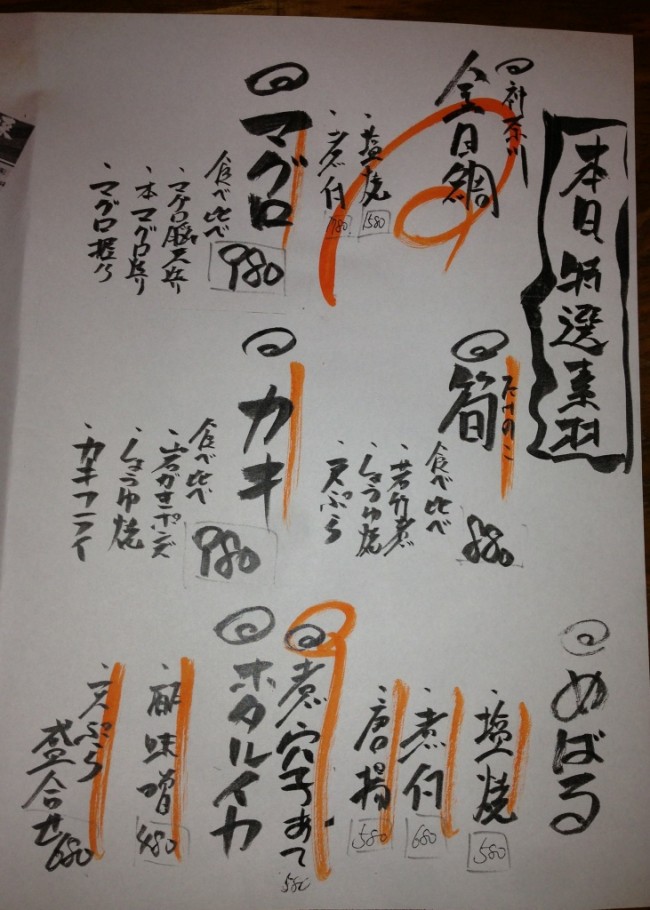 本日特選素材
神奈川
金目鯛
・塩焼 1580
・煮付 1780
マグロ
食べ比べ
980
・マグロ脳天炙り
・本マグロ炙り
・マグロ握り
たけのこ
筍
食べ比べ
880
・若竹煮
・しょうゆ焼
・天ぷら
カキ
食べ比べ
980
・岩がきポンズ
・しょうゆ焼
・カキフライ
めばる
・塩焼 580
・煮付 680
・唐揚 580
煮穴子あて 580
ホタルイカ
・酢味噌 480
・天ぷら
盛合せ 680